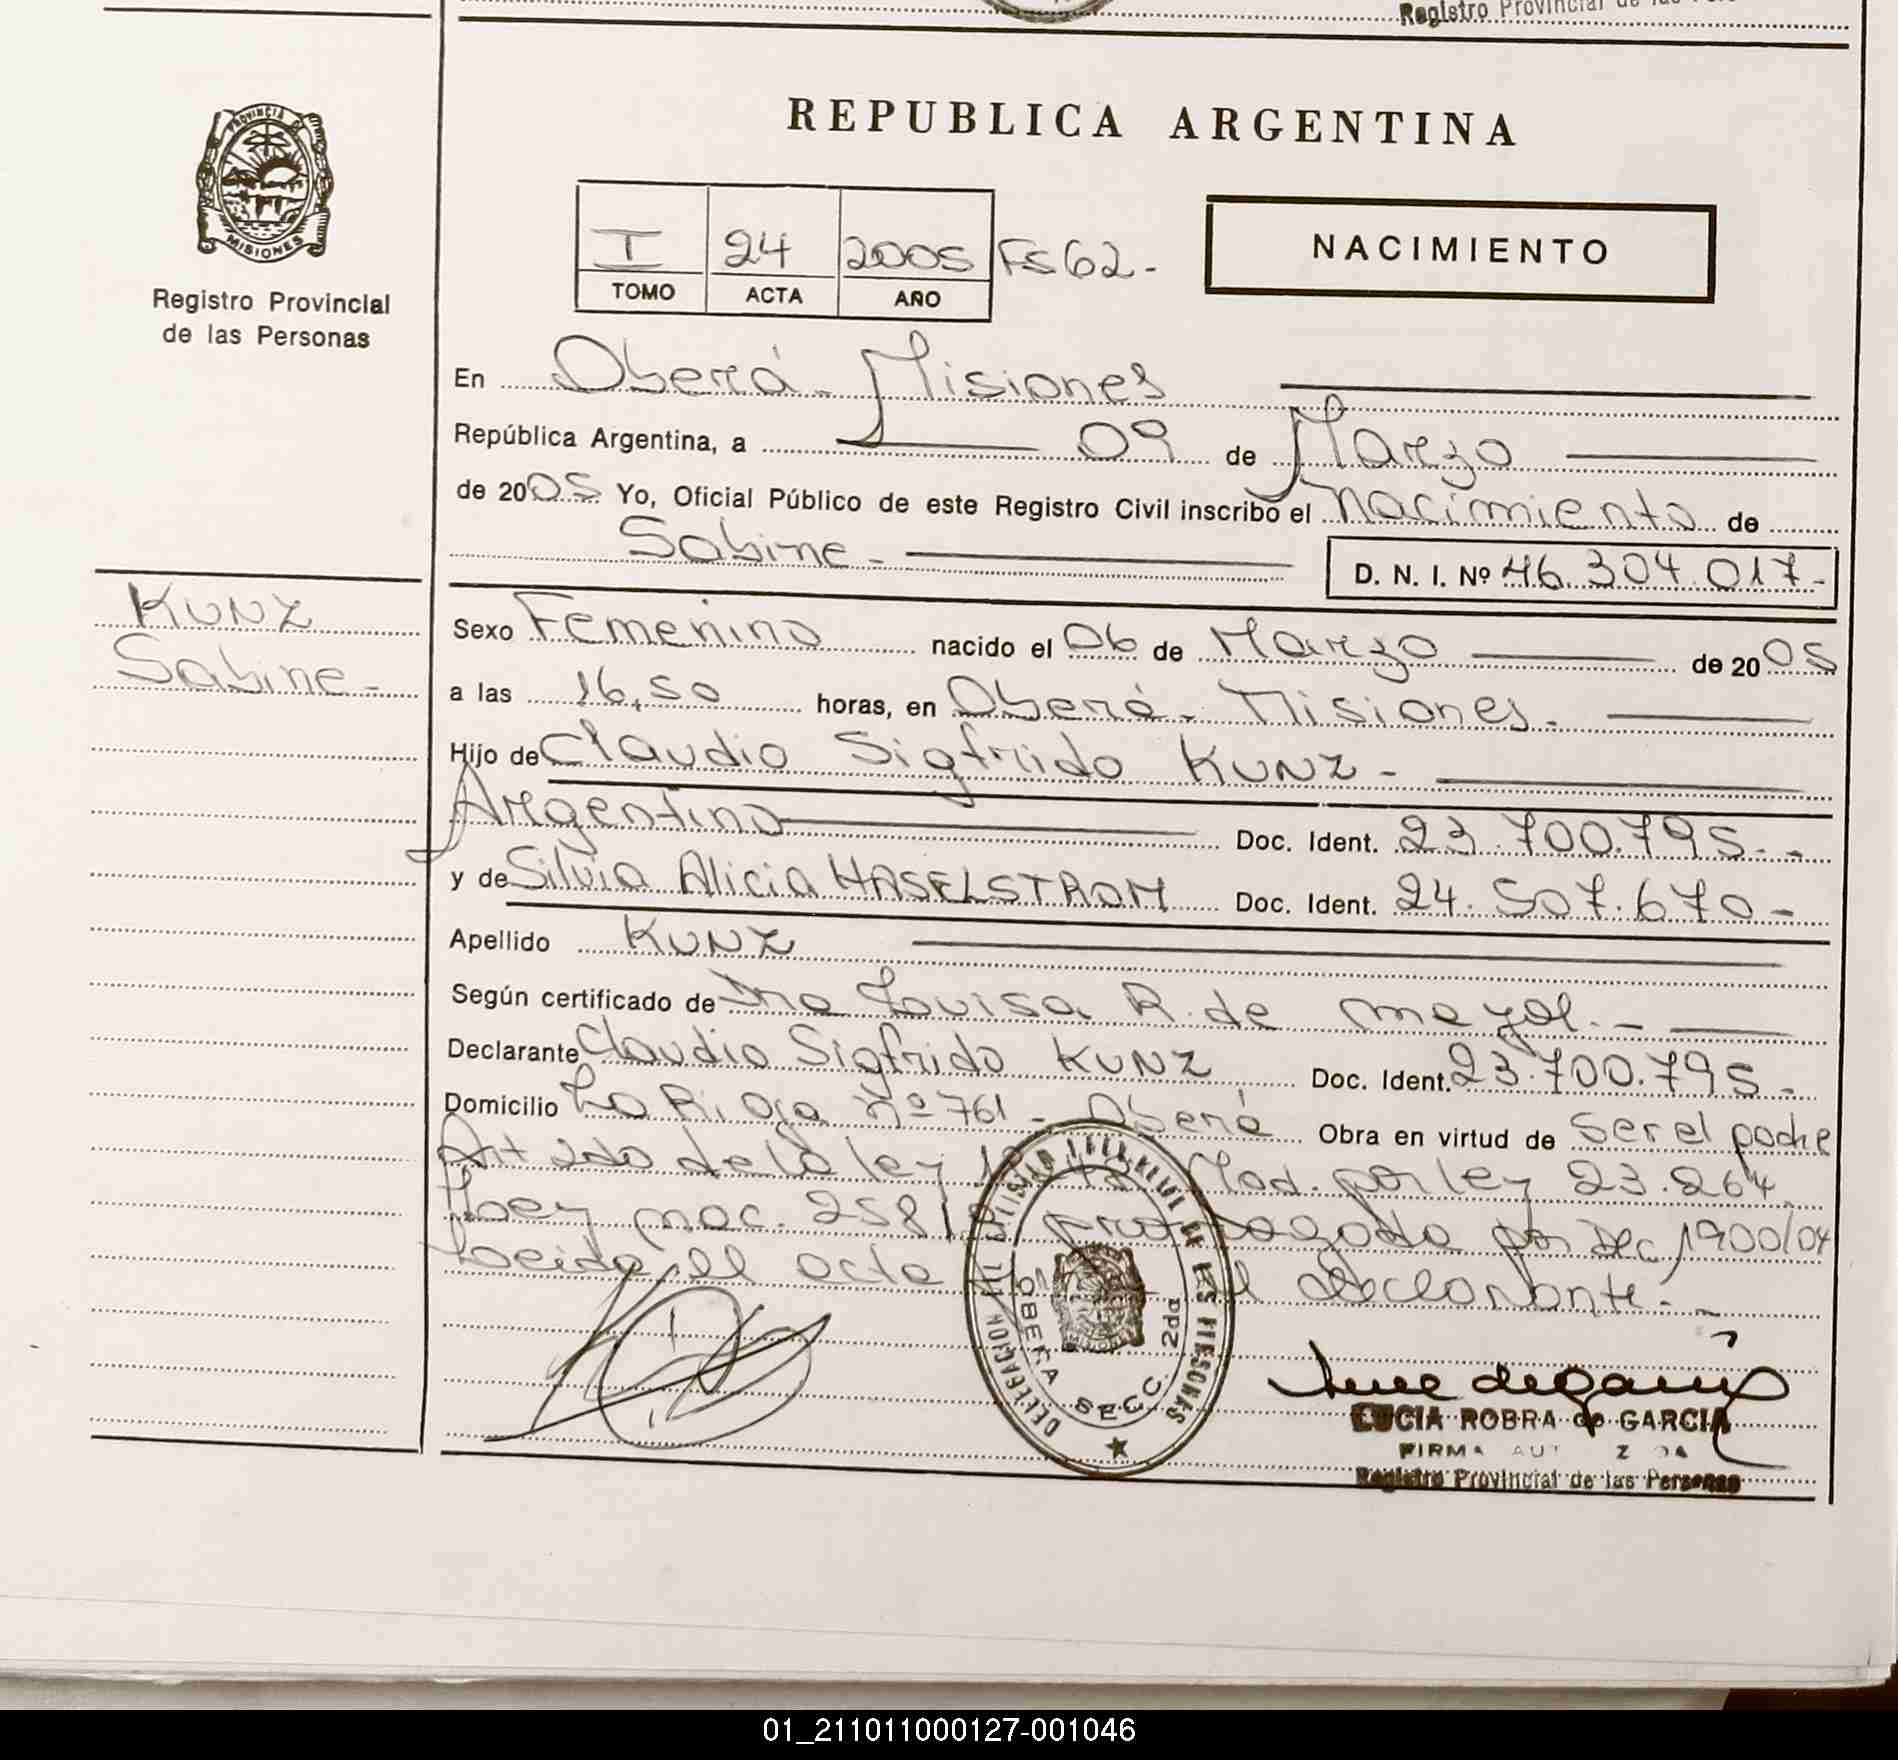 Registro Provincial de las Pers
REPUBLICA ARGENTINA
PROVINCIA DE
MISIONES
Registro Provincial
de las Personas
I 24 2005 Fs 62-
TOMO ACTA AÑO
NACIMIENTO
En Oberá - Misiones
República Argentina, a 09 de Marzo
de 2005 Yo, Oficial Público de este Registro Civil inscribo el Nacimiento de
Sabine - D. N. I. Nº 46.304.017-
KUNZ
Sabine -
Sexo Femenino nacido el 06 de Marzo de 2005
a las 16,50 horas, en Oberá - Misiones -
Hijo de Claudio Sigfrido KUNZ -
Argentino Doc. Ident. 23.700.795.-
y de Silvia Alicia HASELSTROM Doc. Ident. 24.507.670-
Apellido KUNZ
Según certificado de Dra Louisa R. de Mayol.-
Declarante Claudio Sigfrido KUNZ Doc. Ident. 23.700.795-
Domicilio La Rioja Nº 761 - Oberá Obra en virtud de ser el padre
Art 2do de la ley Mod. por ley 23.264
ley nac. 25819 prorrogada por Dec 1900/04
Leida el acta el declarante.-
OBERA SECC. 2da
LUCIA ROBRA de GARCIA
FIRMA AUTORIZADA
Registro Provincial de las Personas
01_211011000127-001046